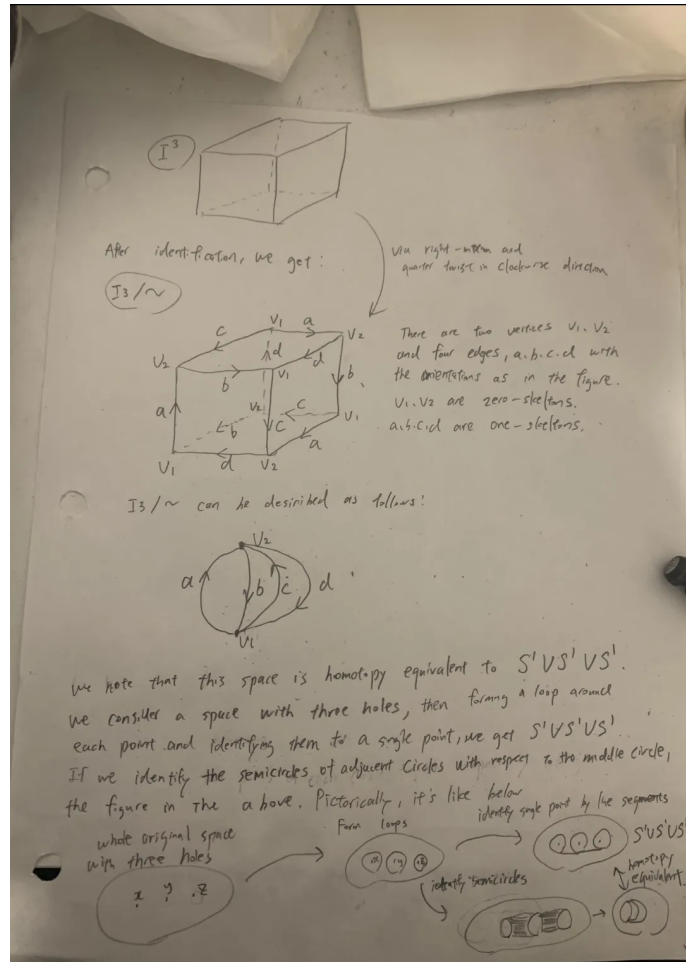 I³
After identification, we get:
via right-
and
quarter twist in clockwise direction
I3/~
V1 a V2
c
d
V2 b V1 d b
There are two vertices V1. V2
and four edges, a.b.c.d with
the orientations as in the figure.
V1. V2 are zero-skeltons.
a.b.c.d are one-skeltons.
a V2 c V1
b c a
V1 d V2
I3/~ can be desiribed as follows:
V2
a b c d
V1
we note that this space is homotopy equivalent to S¹VS¹VS¹.
we consider a space with three holes, then forming a loop around
each point and identifying them to a single point, we get S¹VS¹VS¹
If we identify the semicircles of adjacent circles with respect to the middle circle,
the figure in the above. Pictorically, it's like below
whole original space
with three holes
Form loops
identify single point by line segments
S¹VS¹VS¹
x y z
x y z
identify semicircles
homotopy
equivalent